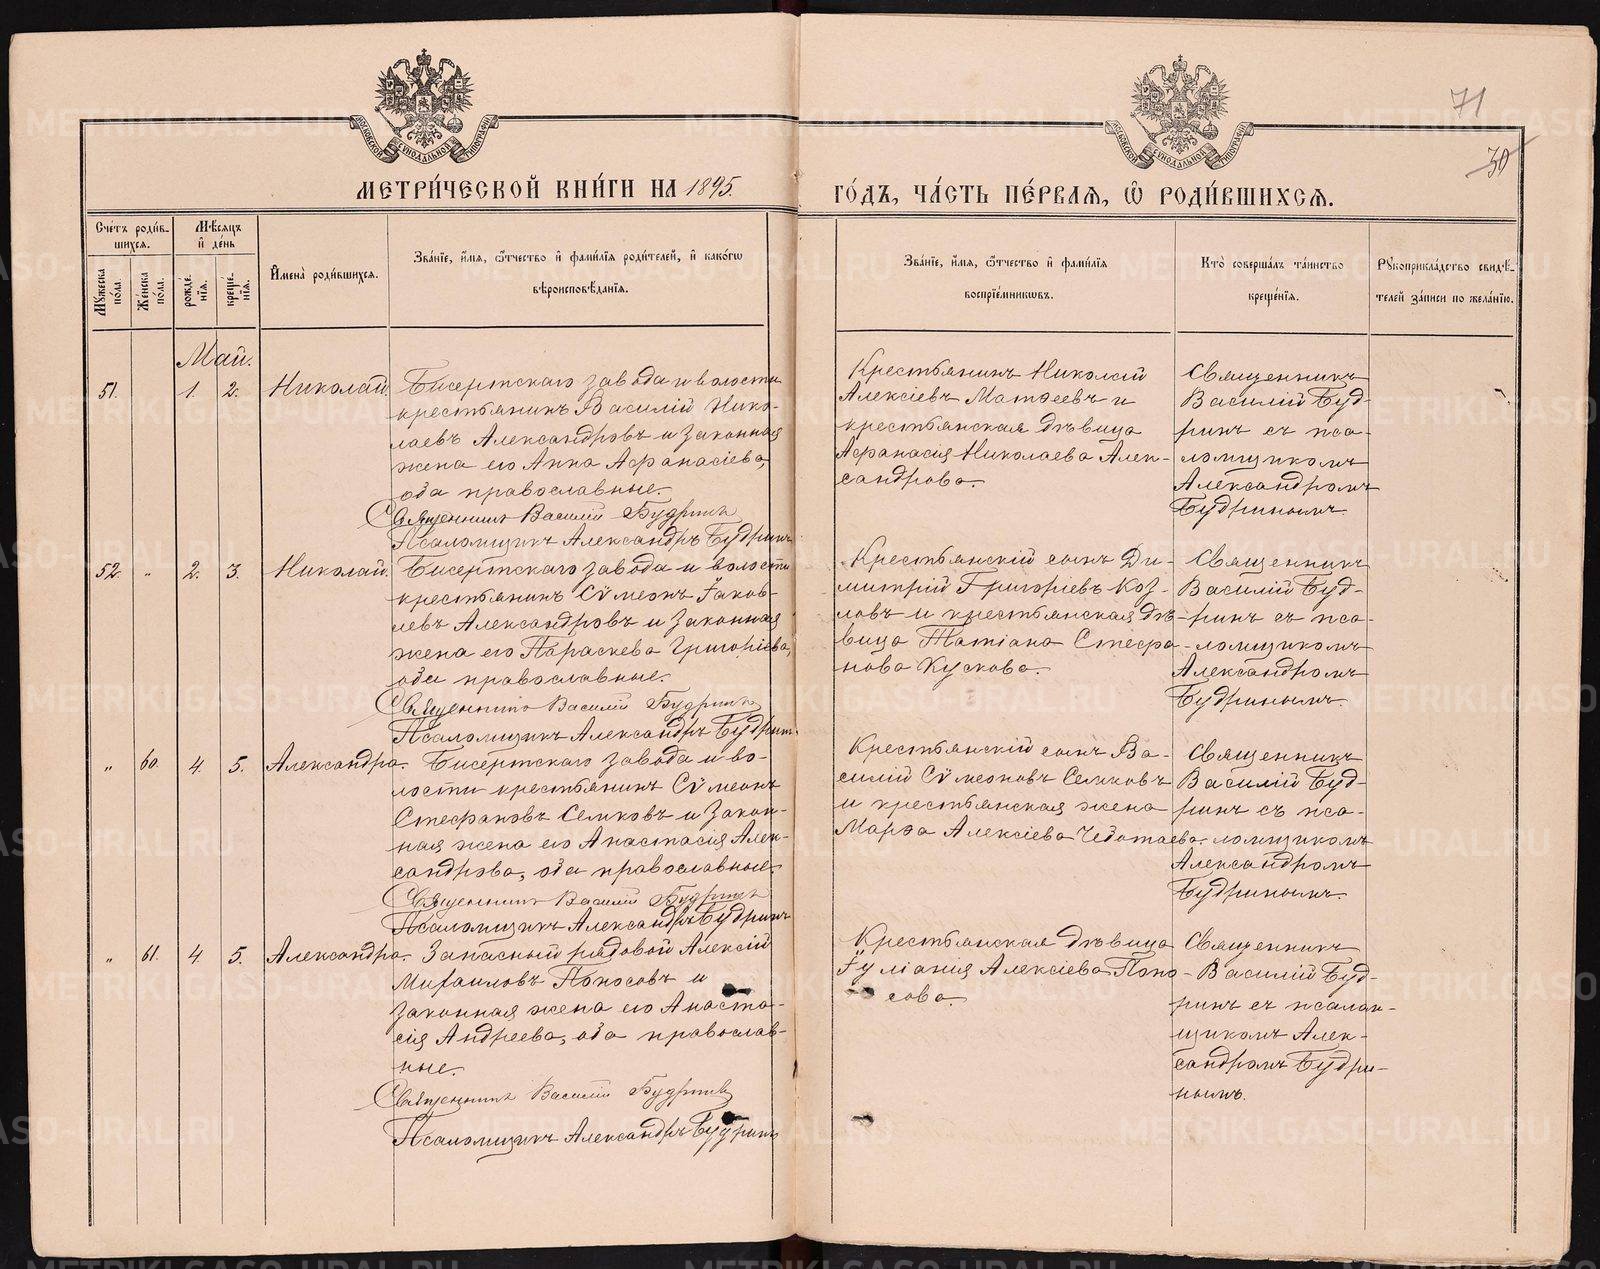 71
30
МОСКОВСКОЙ СѴНОДАЛЬНОЙ ТИПОГРАФІИ
МОСКОВСКОЙ СѴНОДАЛЬНОЙ ТИПОГРАФІИ
МЕТРИ́ЧЕСКОЙ КНИ́ГИ НА 1895.
ГО́ДЪ, ЧА́СТЬ ПЕ́РВАЯ, Ѽ РОДИ́ВШИХСЯ.
Сче́тъ роди́в-
шихся.
Мꙋ́жеска по́ла.
Же́нска пола.
Мѣ́сяцъ
и҆ де́нь
рожде́-
нїѧ.
креще́-
нїѧ.
И҆мена̀ роди́вшихсѧ.
Зва́нїе, и҆́мѧ, ѻ҆́тчество и҆ фами́лїѧ роди́телей, и҆ како́гѡ
вѣроисповѣ́данїѧ.
Зва́нїе, и҆́мѧ, ѻ҆́тчество и҆ фами́лїѧ
воспрїе́мникѡвъ.
Кто̀ соверша́лъ та́инство
креще́нїѧ.
Рꙋкоприкла́дство свидѣ́-
телей за́писи по жела́нїю.
Май.
51.
1. 2.
Николай.
Бисертскаго завода и волости
крестьянинъ Василій Нико-
лаевъ Александровъ и законная
жена его Анна Афанасіева,
оба православные.
Священникъ Василій Будринъ
Псаломщикъ Александръ Будринъ
Крестьянинъ Николай
Алексіевъ Матѳеевъ и
крестьянская дѣвица
Афанасія Николаева Алек-
сандрова.
Священникъ
Василій Буд-
ринъ съ пса-
ломщикомъ
Александромъ
Будринымъ.
52. „ 2. 3.
Николай.
Бисертскаго завода и волости
крестьянинъ Сѵмеонъ Іаков-
левъ Александровъ и законная
жена его Параскева Григоріева,
оба православные.
Священникъ Василій Будринъ
Псаломщикъ Александръ Будринъ
Крестьянскій сынъ Ди-
митрій Григоріевъ Коз-
ловъ и крестьянская дѣ-
вица Татіана Стефа-
нова Кускова.
Священникъ
Василій Буд-
ринъ съ пса-
ломщикомъ
Александромъ
Будринымъ.
„ 60. 4. 5.
Александра.
Бисертскаго завода и во-
лости крестьянинъ Сѵмеонъ
Стефановъ Семковъ и закон-
ная жена его Анастасія Алек-
сандрова, оба православные.
Священникъ Василій Будринъ
Псаломщикъ Александръ Будринъ
Крестьянскій сынъ Ва-
силій Сѵмеоновъ Семковъ
и крестьянская жена
Марѳа Алексіева Чеботаева.
Священникъ
Василій Буд-
ринъ съ пса-
ломщикомъ
Александромъ
Будринымъ.
„ 61. 4. 5.
Александра.
Запасный рядовой Алексій
Михаиловъ Поносовъ и
законная жена его Анаста-
сія Андреева, оба православ-
ные.
Священникъ Василій Будринъ
Псаломщикъ Александръ Будринъ
Крестьянская дѣвица
Іуліанія Алексіева Поно-
сова.
Священникъ
Василій Буд-
ринъ съ псалом-
щикомъ Алек-
сандромъ Будри-
нымъ.
METRIKI.GASO-URAL.RU